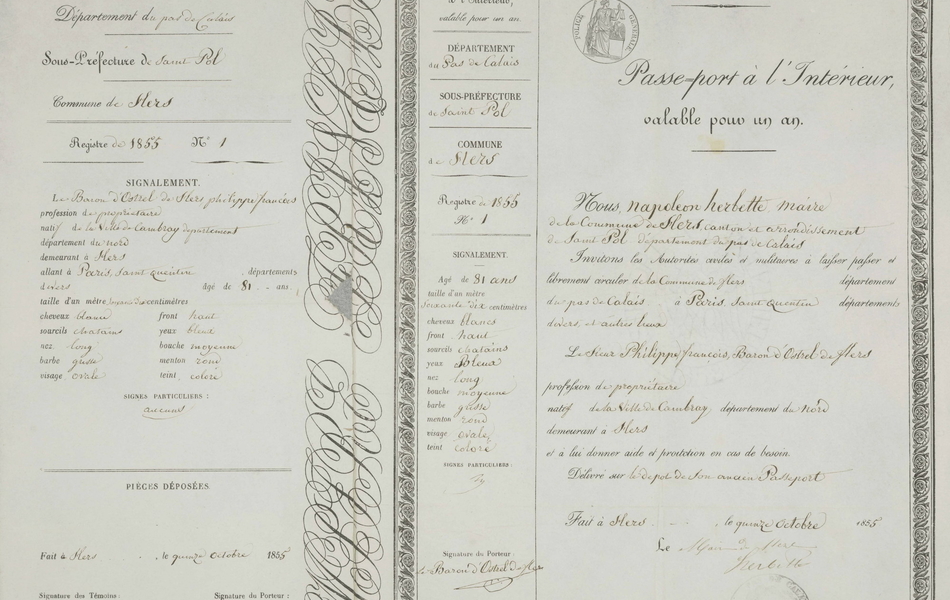 Département du pas de Calais
Sous-Préfecture de Saint Pol
Commune de Flers
Registre de 1855 N° 1
SIGNALEMENT.
Le Baron d'Ostrel de Flers philippe françois
profession de propriétaire
natif de la Ville de Cambray département
département du nord
demeurant à Flers
allant à Paris, Saint quentin départements
divers Agé de 81 ans.
taille d'un mètre soixante dix centimètres
cheveux blancs front haut
sourcils chatains yeux bleux
nez long bouche moyenne
barbe grise menton rond
visage ovale teint coloré
SIGNES PARTICULIERS :
aucuns
PIÈCES DÉPOSÉES
Fait à Flers, le quinze octobre 1855
Signature des Témoins : Signature du Porteur :
à l'Intérieur,
valable pour un an.
DÉPARTEMENT
du Pas de Calais
SOUS-PRÉFECTURE
de Saint Pol
COMMUNE
de Flers
Registre de 1855
N° 1
SIGNALEMENT.
Agé de 81 ans
taille d'un mètre
soixante dix centimètres
cheveux blancs
front haut
sourcils chatains
yeux Bleux
nez long
bouche moyenne
barbe grise
menton rond
visage ovale
teint coloré
SIGNES PARTICULIERS :
Signature du Porteur :
Le Baron d'Ostrel de Flers
POLICE GENERALE
Passe-port à l'Intérieur,
valable pour un an.
Nous, napoleon herbette maire
de la Commune de Flers, canton et arrondissement
de Saint Pol département du pas de Calais
Invitons les Autorités civiles et militaires à laisser passer et
librement circuler de la Commune de flers département
du pas de Calais à Paris, Saint quentin départements
divers, et autres lieux
Le Sieur Philippe françois, Baron d'Ostrel de flers
profession de propriétaire
natif de la Ville de Cambray département du nord
demeurant à Flers
et à lui donner aide et protection en cas de besoin.
Délivré sur le depot de son ancien Passeport
Fait à Flers, le quinze Octobre 1855
Le Maire de flers
Herbette